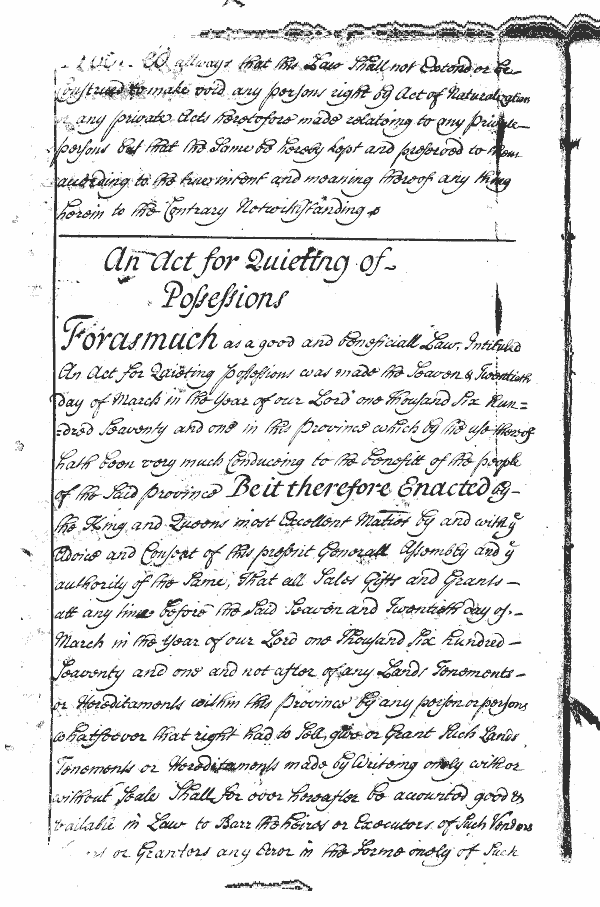 allways that this Law Shall not Extend or be
Construed to make void any persons right by Act of Naturalization
or any private Acts heretofore made relateing to any Private
persons but that the Same be hereby kept and preserved to them
according to the true intent and meaning thereof any thing
herein to the Contrary Notwithstanding
An Act for Quieting of
Possessions
Forasmuch as a good and beneficiall Law, Intituled
An Act for Quieting Possessions was made the Seaven & Twentieth
day of March in the Year of our Lord one thousand Six Hun=
=dred Seaventy and one in this Province which by the use thereof
hath been very much Conduceing to the benefitt of the people
of the Said Province Be it therefore Enacted by
the King and Queens most Excellent Maties by and with ye
Advice and Consent of this present Generall Assembly and ye
authority of the Same, That all Sales Gifts and Grants
att any time before the Said Seaven and Twentieth day of
March in the Year of our Lord one Thousand Six hundred
Seaventy and one and not after of any Lands Tenements
or Hereditaments within this Province by any person or persons
whatsoever that right had to Sell, give or Grant Such Lands
Tenements or Hereditaments made by Writeing onely with or
without Seale Shall for ever hereafter be accounted good &
available in Law to Barr the heires or Executors of Such Vendors
or Grantors any Error in the forme onely of Such